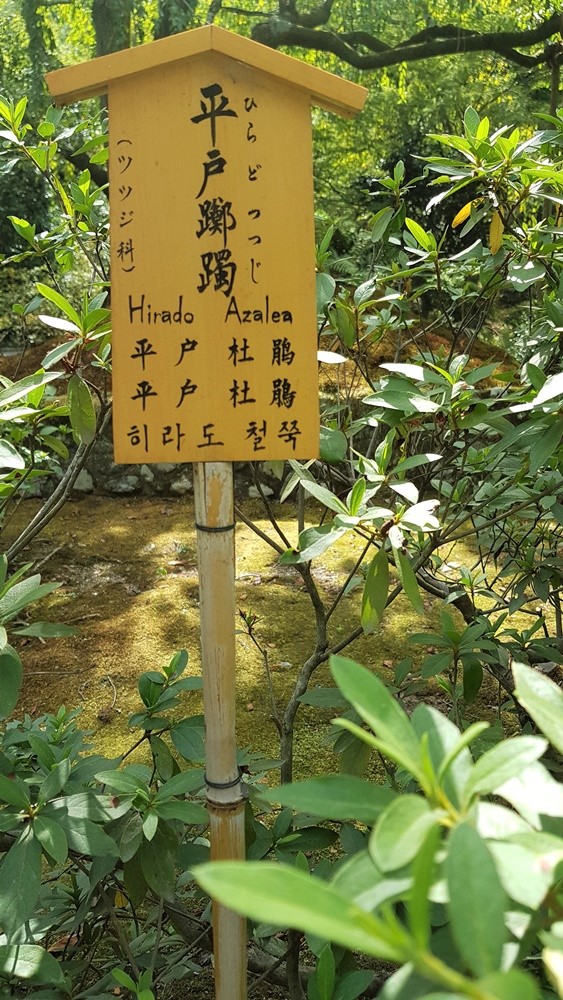 ひらど つつじ
平戸躑躅
(ツツジ科)
Hirado Azalea
平户杜鹃
平戶杜鵑
히라도 철쭉